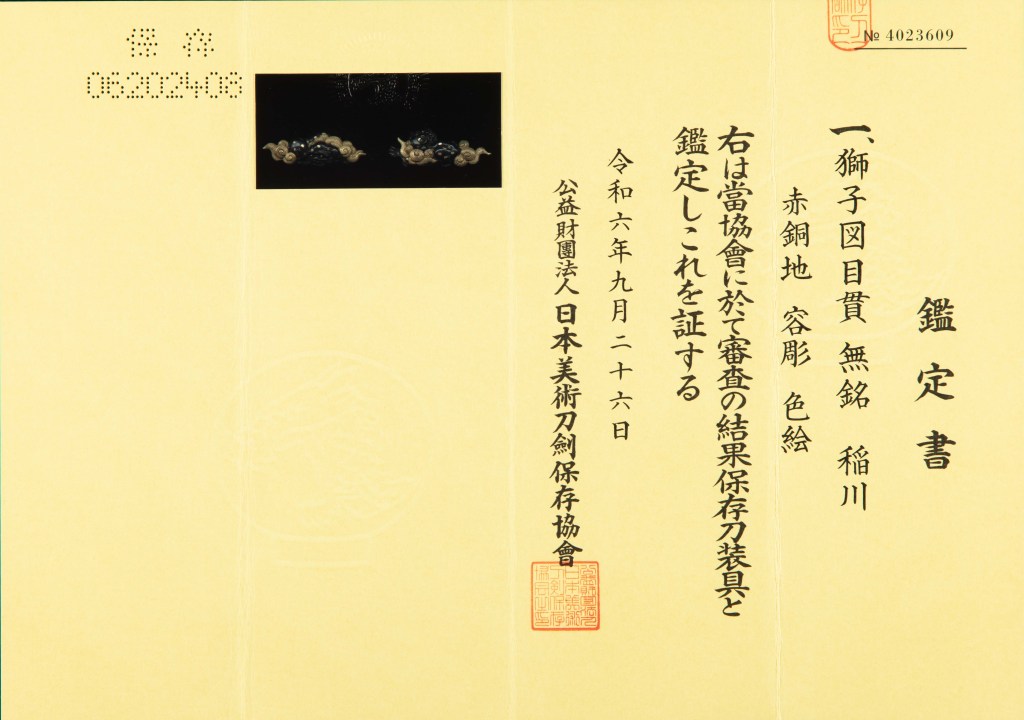 № 4023609
鑑定書
一、獅子図目貫 無銘 稲川
赤銅地 容彫 色絵
右は當協會に於て審査の結果保存刀装具と
鑑定しこれを証する
令和六年九月二十六日
公益財團法人 日本美術刀劍保存協會
保存
06202408